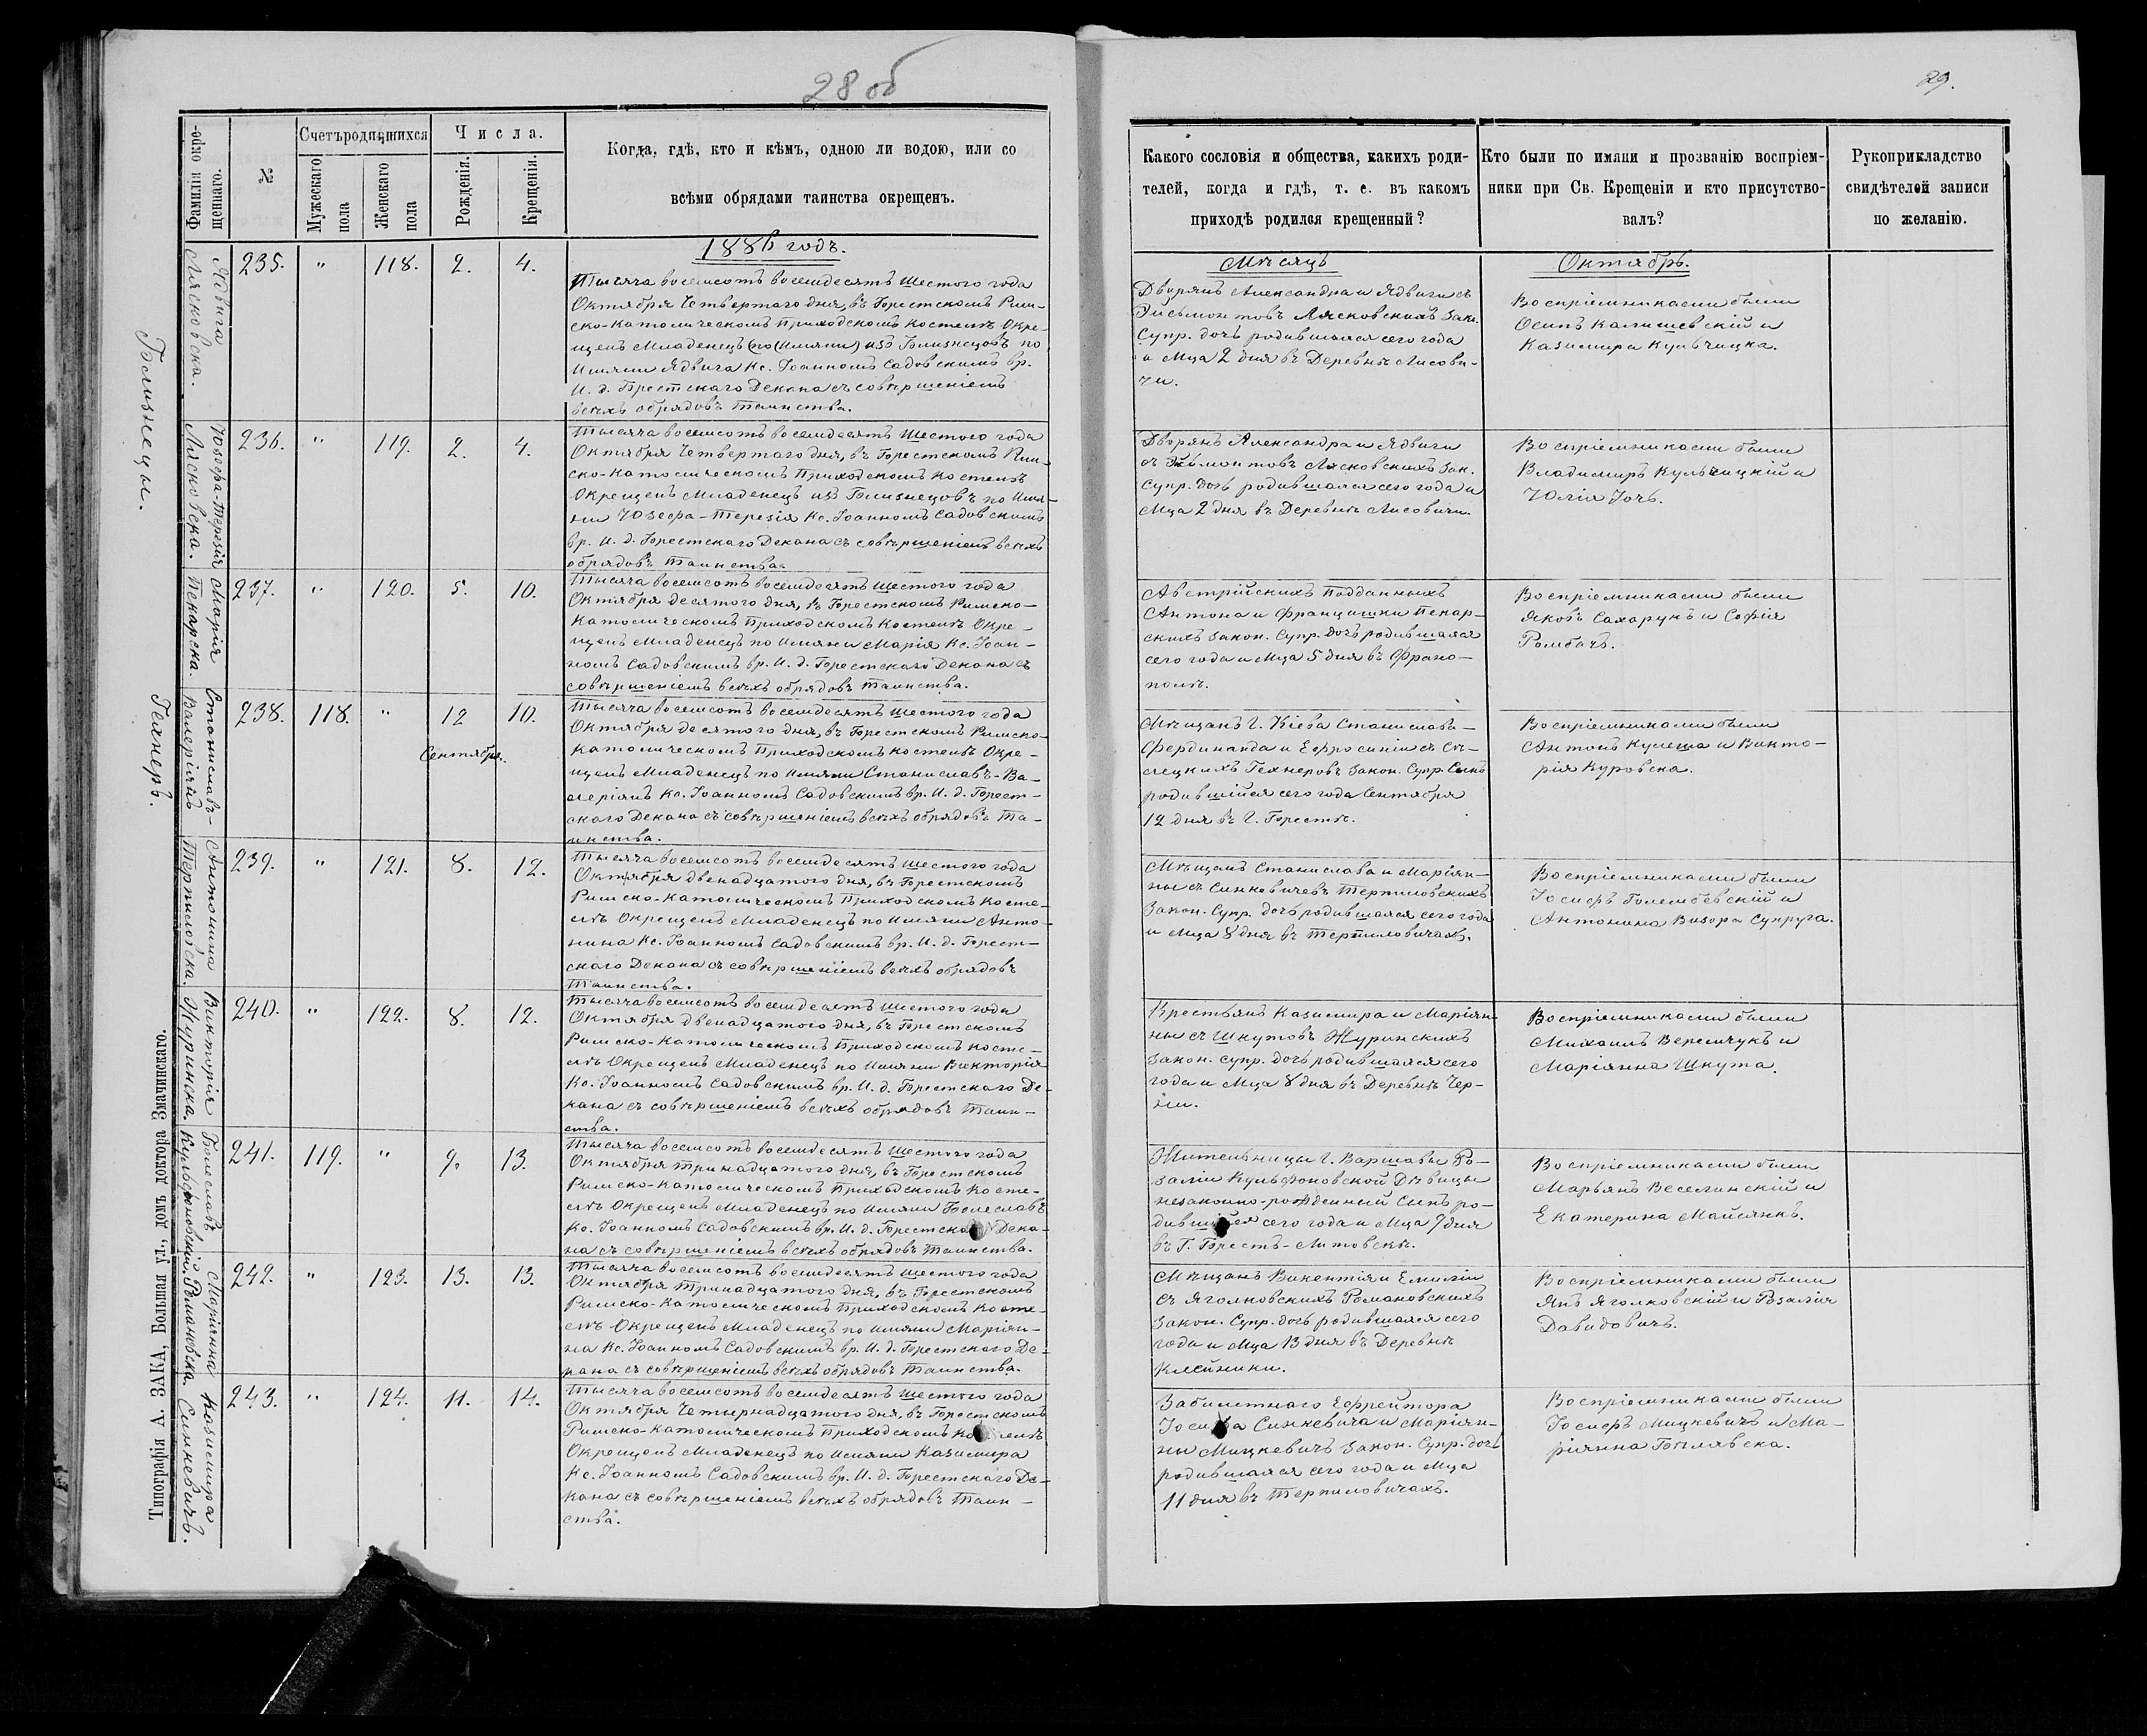 28 об
29.
Фамилія окре-
щеннаго.
№
Счетъ родившихся
Мужескаго
пола
Женскаго
пола
Числа.
Рожденія.
Крещенія.
Когда, гдѣ, кто и кѣмъ, одною ли водою, или со
всѣми обрядами таинства окрещенъ.
Какого сословія и общества, какихъ роди-
телей, когда и гдѣ, т. е. въ какомъ
приходѣ родился крещенный?
Кто были по имяни и прозванію воспріем-
ники при Св. Крещеніи и кто присутство-
валъ?
Рукоприкладство
свидѣтелей записи
по желанію.
1886 годъ.
Мѣсяцъ
Октябрь.
Близнецы.
Ядвига
Лясковска.
235.
"
118.
2.
4.
Тысяча восемсотъ восемдесятъ шестого года
Октября Четвертаго дня, въ Брестскомъ Рим-
ско-Католическомъ Приходскомъ Костелѣ Окре-
щенъ Младенецъ (по Имяни) изъ Близнецовъ по
Имяни Ядвига Кс. Іоанномъ Садовскимъ вр.
И. д. Брестскаго Декана съ совершеніемъ
всѣхъ обрядовъ таинства.
Дворянъ Александра и Ядвиги съ
Эйсмонтовъ Лясковскихъ Зак.
Супр. дочь родившаяся сего года
и Мца 2 дня въ Деревнѣ Лисови-
чи.
Воспріемниками были
Осипъ Калишевскій и
Казимира Кульчицка.
Юзефа-Терезія
Лясковска.
236.
"
119.
2.
4.
Тысяча восемсотъ восемдесятъ шестого года
Октября Четвертаго дня, въ Брестскомъ Рим-
ско-Католическомъ Приходскомъ Костелѣ
Окрещенъ Младенецъ изъ Близнецовъ по Имя-
ни Юзефа-Терезія Кс. Іоанномъ Садовскимъ
вр. И. д. Брестскаго Декана съ совершеніемъ всѣхъ
обрядовъ Таинства.
Дворянъ Александра и Ядвиги
съ Эйсмонтовъ Лясковскихъ Зак.
Супр. дочь родившаяся сего года и
Мца 2 дня въ Деревнѣ Лисовичи.
Воспріемниками были
Владимиръ Кульчицкій и
Юлія Гочъ.
Марія
Пекарска.
237.
"
120.
5.
10.
Тысяча восемсотъ восемдесятъ шестого года
Октября десятого дня, въ Брестскомъ Римско-
Католическомъ Приходскомъ Костелѣ Окре-
щенъ Младенецъ по Имяни Марія Кс. Іоан-
номъ Садовскимъ вр. И. д. Брестскаго Декана съ
совершеніемъ всѣхъ обрядовъ таинства.
Австрійскихъ Подданныхъ
Антона и Францишки Пекар-
скихъ закон. Супр. дочь родившаяся
сего года и Мца 5 дня въ Франо-
полѣ.
Воспріемниками были
Яковъ Сахарукъ и Софія
Ромбачъ.
Станиславъ-
Валеріянъ
Гехнеръ.
238.
118.
"
12
Сентября.
10.
Тысяча восемсотъ восемдесятъ шестого года
Октября десятого дня, въ Брестскомъ Римско-
Католическомъ Приходскомъ Костелѣ Окре-
щенъ Младенецъ по Имяни Станиславъ-Ва-
леріянъ Кс. Іоанномъ Садовскимъ вр. И. д. Брест-
скаго Декана съ совершеніемъ всѣхъ обрядовъ Та-
инства.
Мѣщанъ г. Кіева Станислава-
Фердинанда и Ефросиніи съ
Гехнеровъ Закон. Супр. Сынъ
родившійся сего года Сентября
12 дня въ г. Брестѣ.
Воспріемниками были
Антонъ Кулеша и Викто-
рія Куровска.
Антонина
Терпиловска.
239.
"
121.
8.
12.
Тысяча восемсотъ восемдесятъ шестого года
Октября двенадцатого дня, въ Брестскомъ
Римско-Католическомъ Приходскомъ Косте-
лѣ Окрещенъ Младенецъ по Имяни Анто-
нина Кс. Іоанномъ Садовскимъ вр. И. д. Брест-
скаго Декана съ совершеніемъ всѣхъ обрядовъ
Таинства.
Мѣщанъ Станислава и Маріян-
ны съ Синковичевъ Терпиловскихъ
Закон. Супр. дочь родившаяся сего года
и Мца 8 дня въ Терпиловичахъ.
Воспріемниками были
Іосифъ Голембевскій и
Антонина Визора Супруга.
Викторія
Журинска.
240.
"
122.
8.
12.
Тысяча восемсотъ восемдесятъ шестого года
Октября двенадцатого дня, въ Брестскомъ
Римско-Католическомъ Приходскомъ Косте-
лѣ Окрещенъ Младенецъ по Имяни Викторія
Кс. Іоанномъ Садовскимъ вр. И. д. Брестскаго Де-
кана съ совершеніемъ всѣхъ обрядовъ Таин-
ства.
Крестьянъ Казимира и Маріян-
ны съ Шкутовъ Журинскихъ
Закон. супр. дочь родившаяся сего
года и Мца 8 дня въ Деревнѣ Чер-
ни.
Воспріемниками были
Михаилъ Веремчукъ и
Маріянна Шкута.
Болеславъ
Кульфоновскій.
241.
119.
"
9.
13.
Тысяча восемсотъ восемдесятъ шестого года
Октября тринадцатого дня, въ Брестскомъ
Римско-Католическомъ Приходскомъ Косте-
лѣ Окрещенъ Младенецъ по Имяни Болеславъ
Кс. Іоанномъ Садовскимъ вр. И. д. Брестскаго Дека-
на съ совершеніемъ всѣхъ обрядовъ Таинства.
Жительницы г. Варшавы Ро-
заліи Кульфоновской Дѣвицы
незаконно-рожденный Сынъ ро-
дившійся сего года и Мца 9 дня
въ Г. Брестъ-Литовскѣ.
Воспріемниками были
Марьянъ Веселинскій и
Екатерина Майсянкъ.
Маріянна
Романовска.
242.
"
123.
13.
13.
Тысяча восемсотъ восемдесятъ шестого года
Октября Тринадцатого дня, въ Брестскомъ
Римско-Католическомъ Приходскомъ Косте-
лѣ Окрещенъ Младенецъ по Имяни Маріян-
на Кс. Іоанномъ Садовскимъ вр. И. д. Брестскаго Де-
кана съ совершеніемъ всѣхъ обрядовъ Таинства.
Мѣщанъ Викентія и Емиліи
съ Яголковскихъ Романовскихъ
Закон. Супр. дочь родившаяся сего
года и Мца 13 дня въ Деревнѣ
Клейники.
Воспріемниками были
Янъ Яголковскій и Розалія
Давидовичъ.
Казимира
Синкевичъ.
243.
"
124.
11.
14.
Тысяча восемсотъ восемдесятъ шестого года
Октября Четырнадцатого дня, въ Брестскомъ
Римско-Католическомъ Приходскомъ Костелѣ
Окрещенъ Младенецъ по Имяни Казимира
Кс. Іоанномъ Садовскимъ вр. И. д. Брестскаго Де-
кана съ совершеніемъ всѣхъ обрядовъ Таин-
ства.
Забилетнаго Ефрейтора
Іосифа Синкевича и Маріян-
ны Мицкевичъ Закон. Супр. дочь
родившаяся сего года и Мца
11 дня въ Терпиловичахъ.
Воспріемниками были
Іосифъ Мицкевичъ и Ма-
ріянна
Типографія А. ЗАКА, Большая ул., домъ доктора Змачинскаго.